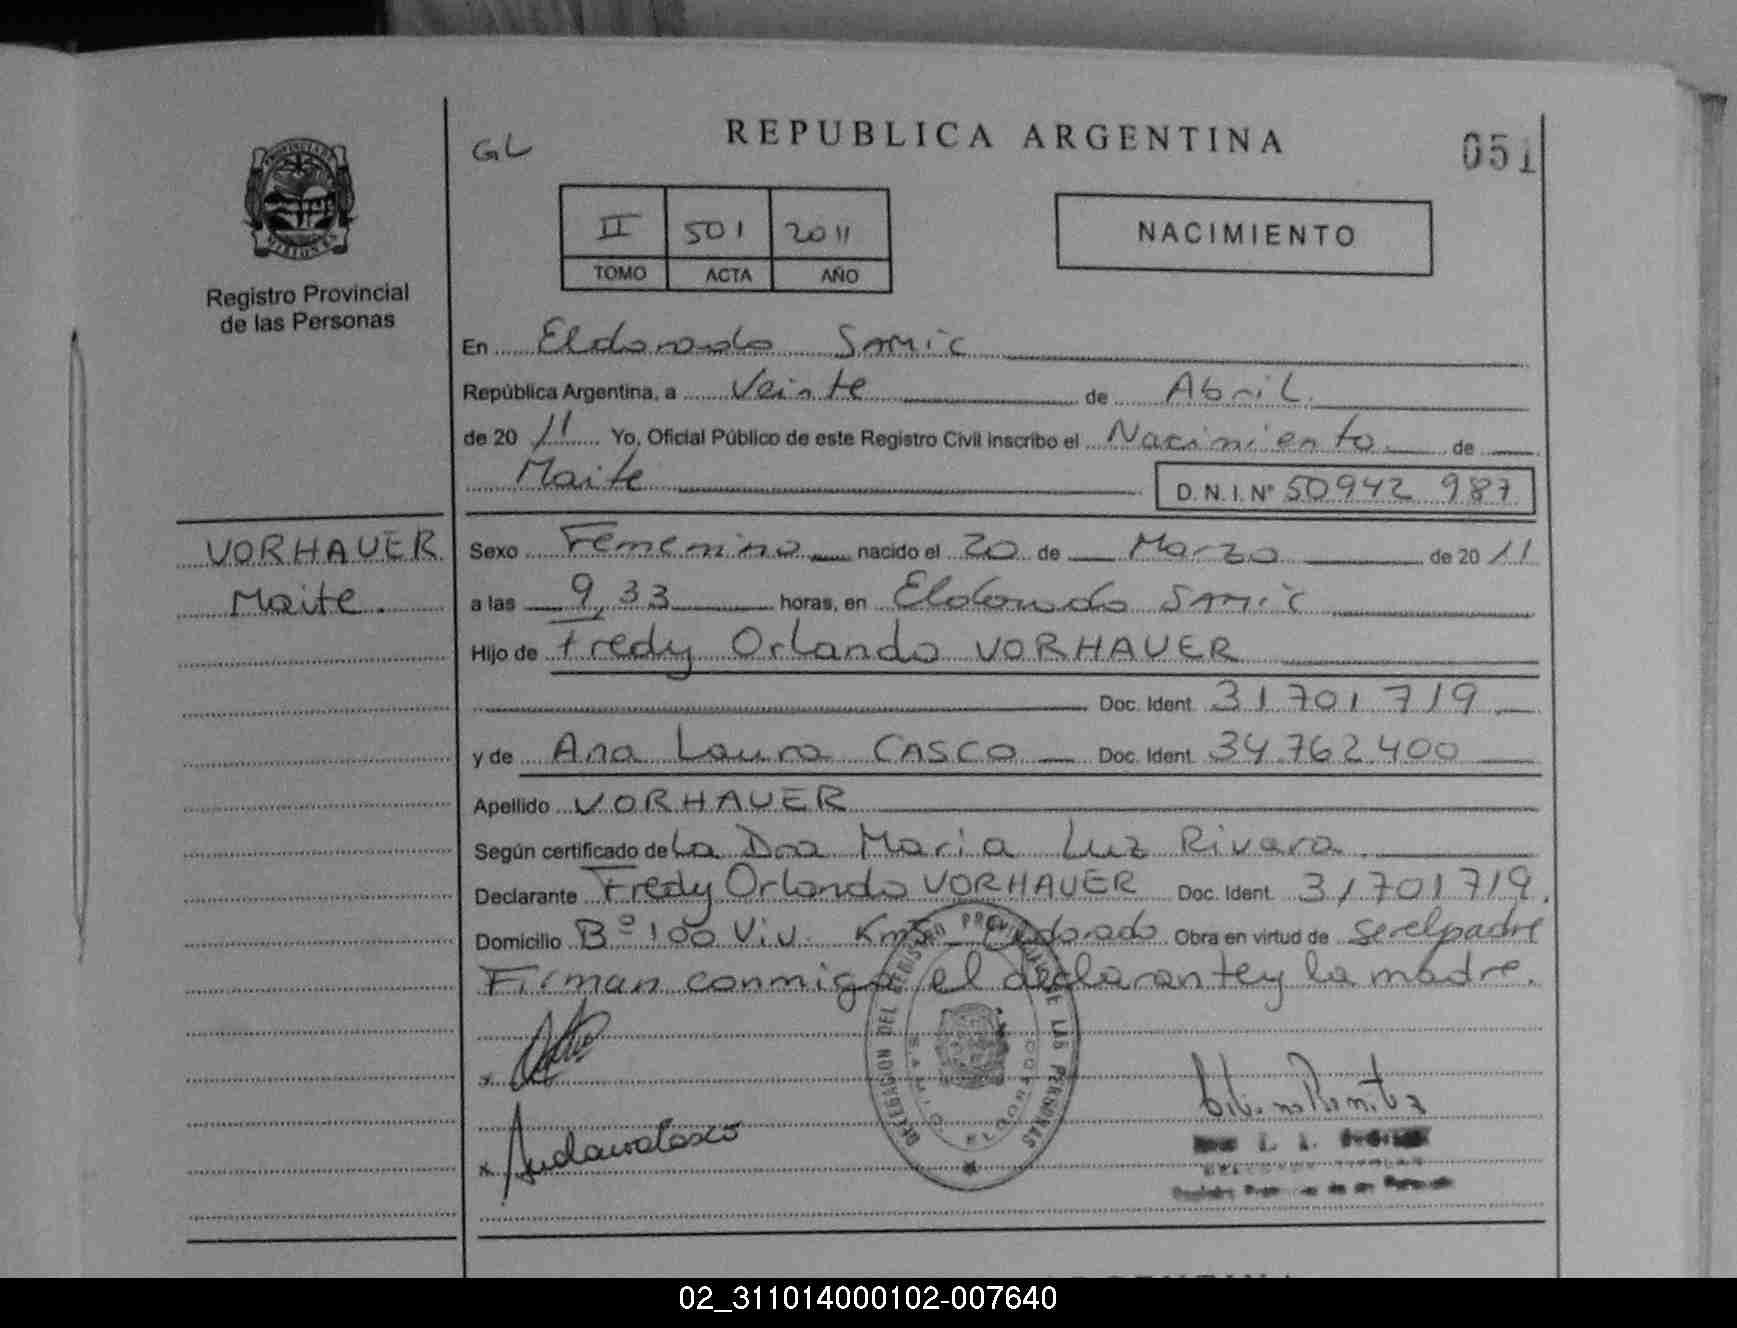 GL
REPUBLICA ARGENTINA
051
PROVINCIA DE
MISIONES
Registro Provincial
de las Personas
II 501 2011
TOMO ACTA AÑO
NACIMIENTO
En Eldorado SAMIC
República Argentina, a Veinte de Abril
de 20 11 Yo, Oficial Público de este Registro Civil inscribo el Nacimiento de
Maite D. N. I. Nº 50942 987
VORHAUER
Maite.
Sexo Femenino nacido el 20 de Marzo de 20 11
a las 9,33 horas, en Eldorado SAMIC
Hijo de Fredy Orlando VORHAUER
Doc. Ident. 31701719
y de Ana Laura CASCO Doc. Ident. 34.762.400
Apellido VORHAUER
Según certificado de La Dra Maria Luz Rivara
Declarante Fredy Orlando VORHAUER Doc. Ident. 31701719.
Domicilio Bº 100 Viv. Km5 Eldorado Obra en virtud de ser el padre
Firman conmigo el declarante y la madre.
DELEGACION DEL REGISTRO PROVINCIAL DE LAS PERSONAS
SAMIC
ELDORADO
02_311014000102-007640